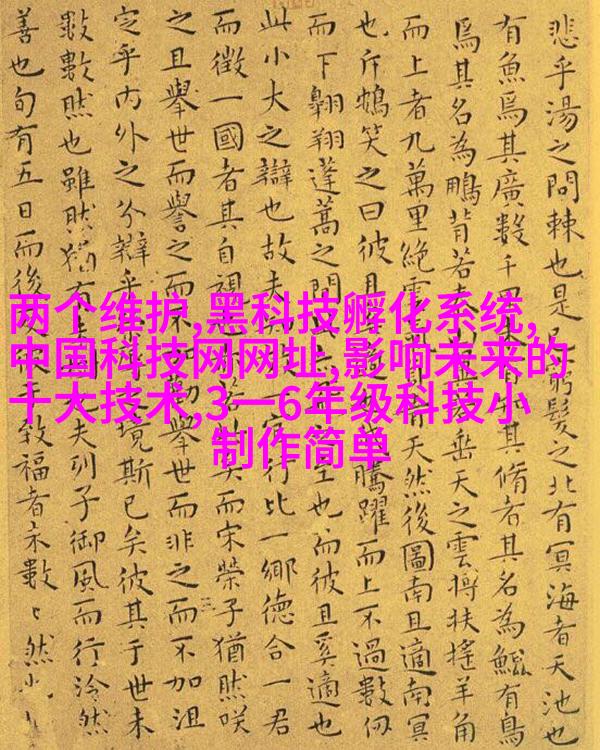 悲乎湯之問棘也是窮髮之北有冥海者天池也
有魚焉其廣數千里未有其脩者其名為鯤有鳥
焉其名為鵬背若泰垂天之雲摶扶搖羊角
而上者九萬里絕雲天然後圖南且適南冥
也斥鴳笑之曰彼且騰躍而上不過數仞
而下翱翔蓬蒿之間至也而彼且奚適也
此小大之辯也故夫行比一鄉德合一君
而徵一國者其自視矣而宋榮子猶然咲
之且舉世而譽之而不加舉世而非之而不加沮
定乎內外之分辯乎境斯已矣彼其于世未
數數然也雖然猶有夫列子御風而行泠然
善也旬有五日而後致福者未數〻然也
两个维护,黑科技孵化系统,
中国科技网网址,影响未来的
十大技术,3一6年级科技小
制作简单